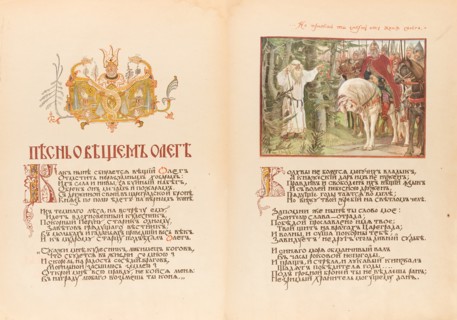 ПѢСНЬ О ВѢЩЕМЪ ОЛЕГѢ
Какъ нынѣ сбирается вѣщій Олегъ
Отмстить неразумнымъ хозарамъ:
Ихъ села и нивы за буйный набѣгъ
Обрекъ онъ мечамъ и пожарамъ;
Съ дружиной своей въ цареградской бронѣ,
Князь по полю ѣдетъ на вѣрномъ конѣ.
Изъ темнаго лѣса на встрѣчу ему
Идетъ вдохновенный кудесникъ,
Покорный Перуну старикъ одному,
Завѣтовъ грядущаго вѣстникъ,
Въ мольбахъ и гаданьяхъ проведшій весь вѣкъ.
И къ мудрому старцу подъѣхалъ Олегъ.
„Скажи мнѣ, кудесникъ, любимецъ боговъ,
Что сбудется въ жизни со мною?
И скоро ль, на радость сосѣдей-враговъ,
Могильной засыплюсь землею?
Открой мнѣ всю правду, не бойся меня:
Въ награду любаго возьмешь ты коня.“
Волхвы не боятся могучихъ владыкъ,
А княжескій даръ имъ не нуженъ;
Правдивъ и свободенъ ихъ вѣщій языкъ
И съ волей небесною друженъ.
Грядущіе годы таятся во мглѣ;
Но вижу твой жребій на свѣтломъ челѣ.
Запомни же нынѣ ты слово мое:
Воителю слава — отрада;
Побѣдой прославлено имя твое;
Твой щитъ на вратахъ Цареграда;
И волны и суша покорны тебѣ;
Завидуетъ недругъ столь дивной судьбѣ.
И синяго моря обманчивый валъ
Въ часы роковой непогоды,
И пращъ, и стрѣла, и лукавый кинжалъ
Щадятъ побѣдителя годы...
Подъ грозной броней ты не вѣдаешь ранъ;
Незримый хранитель могущему данъ.